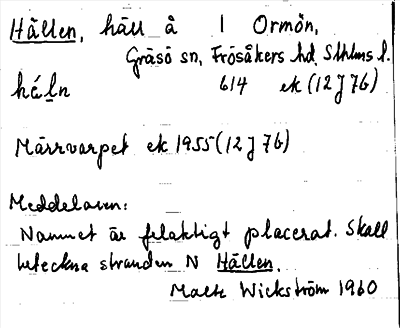 Hållen, häll å l Ormön,
Gräsö sn, Frösåkers hd, Sthlms l.
614 ek (12 J 7b)
Märrvarpet ek 1955 (12 J 7b)
Meddelaren:
Namnet är felaktigt placerat. Skall
beteckna stranden N Hällen.
Malte Wickström 1960